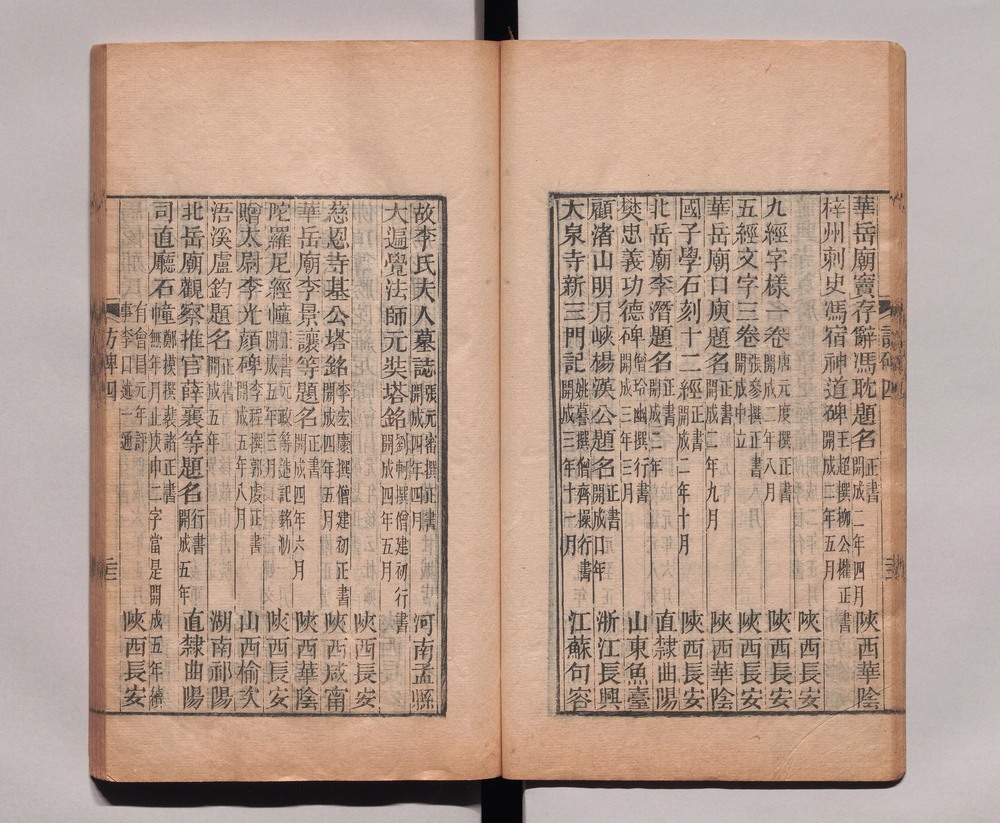 華岳廟賈存辭馮耽題名 正書 開成二年四月 陝西華陰
梓州刺史馮宿神道碑 王超撰柳公權正書 開成二年五月
九經字樣一卷 唐元度撰正書 開成二年八月 陝西長安
五經文字三卷 張參撰正書 開成中立 陝西長安
華岳廟口庾題名 正書 開成二年九月 陝西華陰
國子學石刻十二經 正書 開成二年十月 陝西長安
北岳廟李潛題名 正書 開成三年 直隸曲陽
樊忠義功德碑 僧玲幽撰行書 開成三年三月 山東魚臺
顧渚山明月峽楊漢公題名 正書 開成口年 浙江長興
大泉寺新三門記 姚謩撰僧齊操行書 開成三年十一月 江蘇句容
訪碑四
故李氏夫人墓誌 張元審撰正書 開成四年四月 河南孟縣
大遍覺法師元奘塔銘 劉軻撰僧建初行書 開成四年五月 陝西長安
慈恩寺基公塔銘 李宏慶撰僧建初正書 開成四年五月 陝西咸甯
華岳廟李景讓等題名 正書 開成四年六月 陝西華陰
陀羅尼經幢 正書元政等造記銘 開成五年三月 陝西長安
贈太尉李光顏碑 李程撰郭虔正書 開成五年八月 山西榆次
浯溪盧鈞題名 正書 開成五年 湖南祁陽
北岳廟觀察推官薛襄等題名 行書 開成五年 直隸曲陽
司直廳石幢 鄭模撰裴諸正書 無年月止庚申二字當是開成五年續 有會昌元年許 事李口遺一通 陝西長安
方碑四